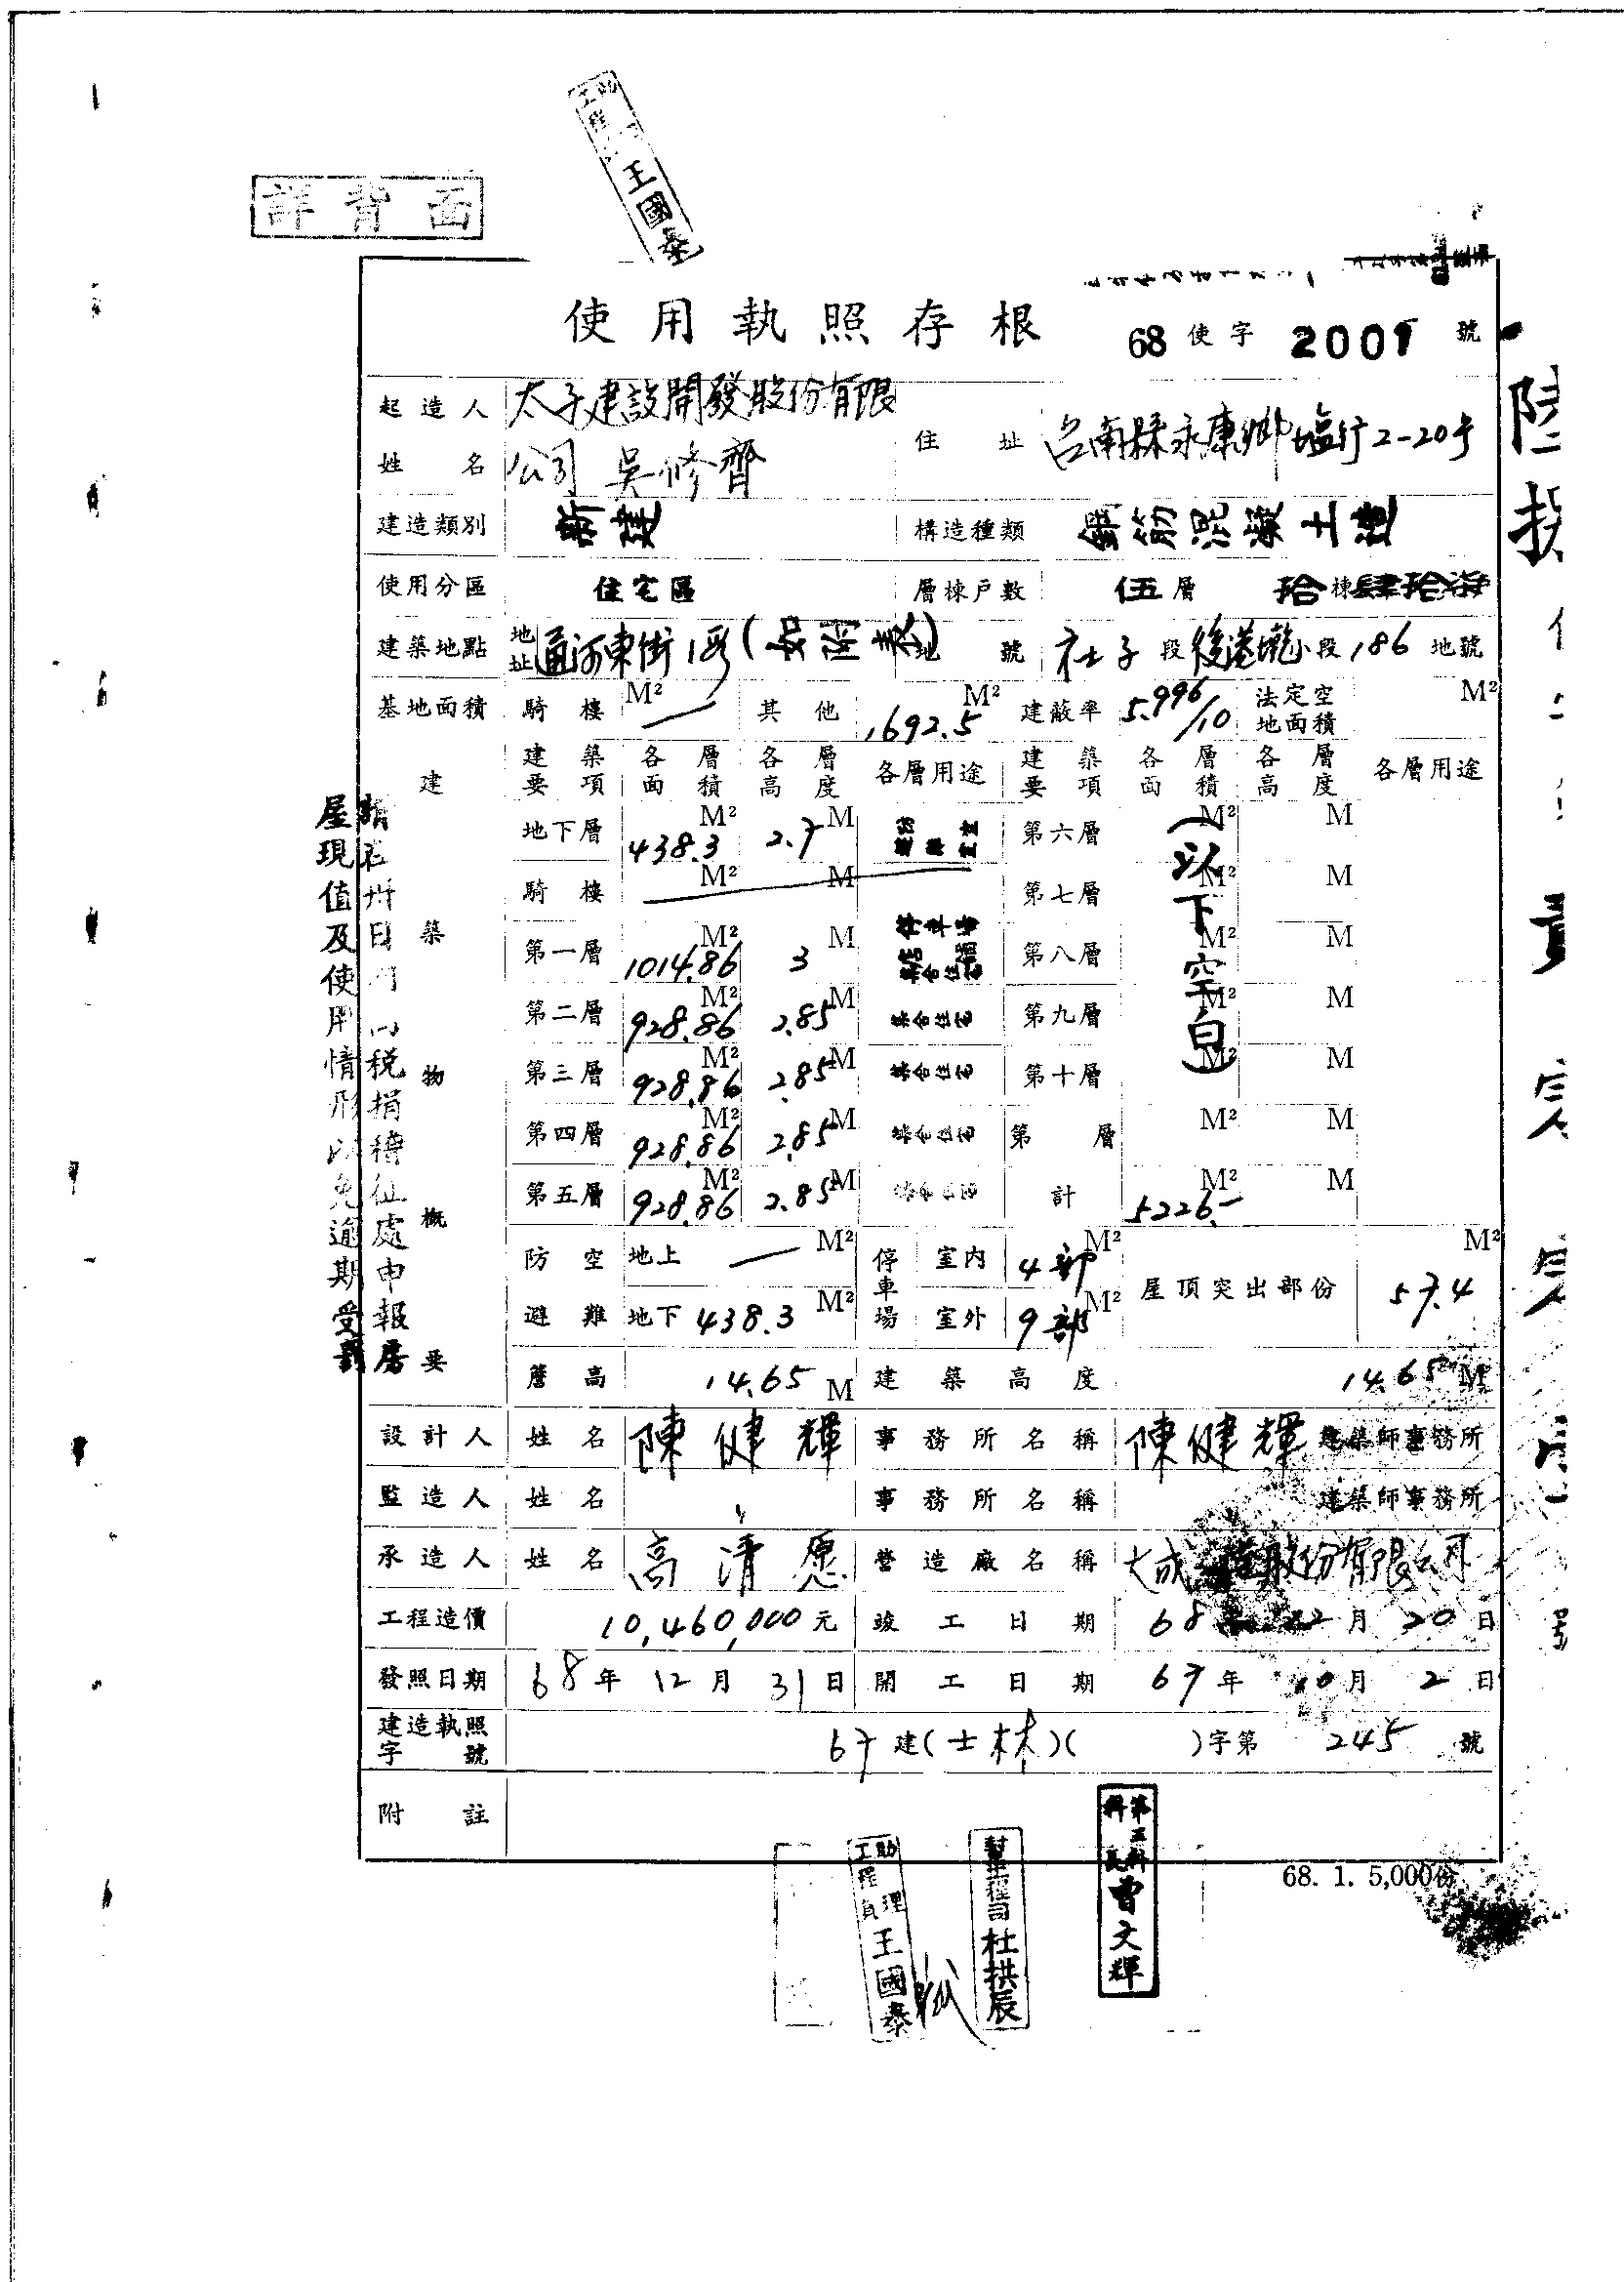 詳背面
王國泰
使用執照存根
68 使字 2001 號
起造人姓名 太子建設開發股份有限公司 吳修齊 住址 台南縣永康鄉塩行2-20号
建造類別 新建 構造種類 鋼筋混凝土造
使用分區 住宅區 層棟戶數 伍層 拾棟肆拾柒
建築地點 地址 通河東街1段 地號 社子段後港墘小段186地號
基地面積 騎樓 M² — 其他 1692.5 M² 建蔽率 5.996/10 法定空地面積 M²
建築概要 建築要項 各層面積 各層高度 各層用途 建築要項 各層面積 各層高度 各層用途
地下層 438.3 M² 2.7 M 第六層 M² M
騎樓 M² M 第七層 M² M
第一層 1014.86 M² 3 M 停車場 集合住宅 第八層 M² M
第二層 928.86 M² 2.85 M 集合住宅 第九層 M² M
第三層 928.86 M² 2.85 M 集合住宅 第十層 M² M
第四層 928.86 M² 2.85 M 集合住宅 第 層 M² M
第五層 928.86 M² 2.85 M 集合住宅 計 5226.— M² M
(以下空白)
防空避難 地上 — M² 停車場 室內 4部 M² 屋頂突出部份 57.4 M²
地下 438.3 M² 室外 9部 M²
簷高 14.65 M 建築高度 14.65 M
設計人 姓名 陳健輝 事務所名稱 陳健輝 建築師事務所
監造人 姓名 〃 事務所名稱 建築師事務所
承造人 姓名 高清愿 營造廠名稱 大成 股份有限公司
工程造價 10,460,000元 竣工日期 68年12月20日
發照日期 68年12月31日 開工日期 67年10月2日
建造執照字號 67建(士林)( )字第 245 號
附註
68. 1. 5,000份
稅捐稽征處申報房
屋現值及使用情形以免逾期受罰
助理工程員 王國泰
幫工程司 杜拱辰
第三科科長 曾文輝